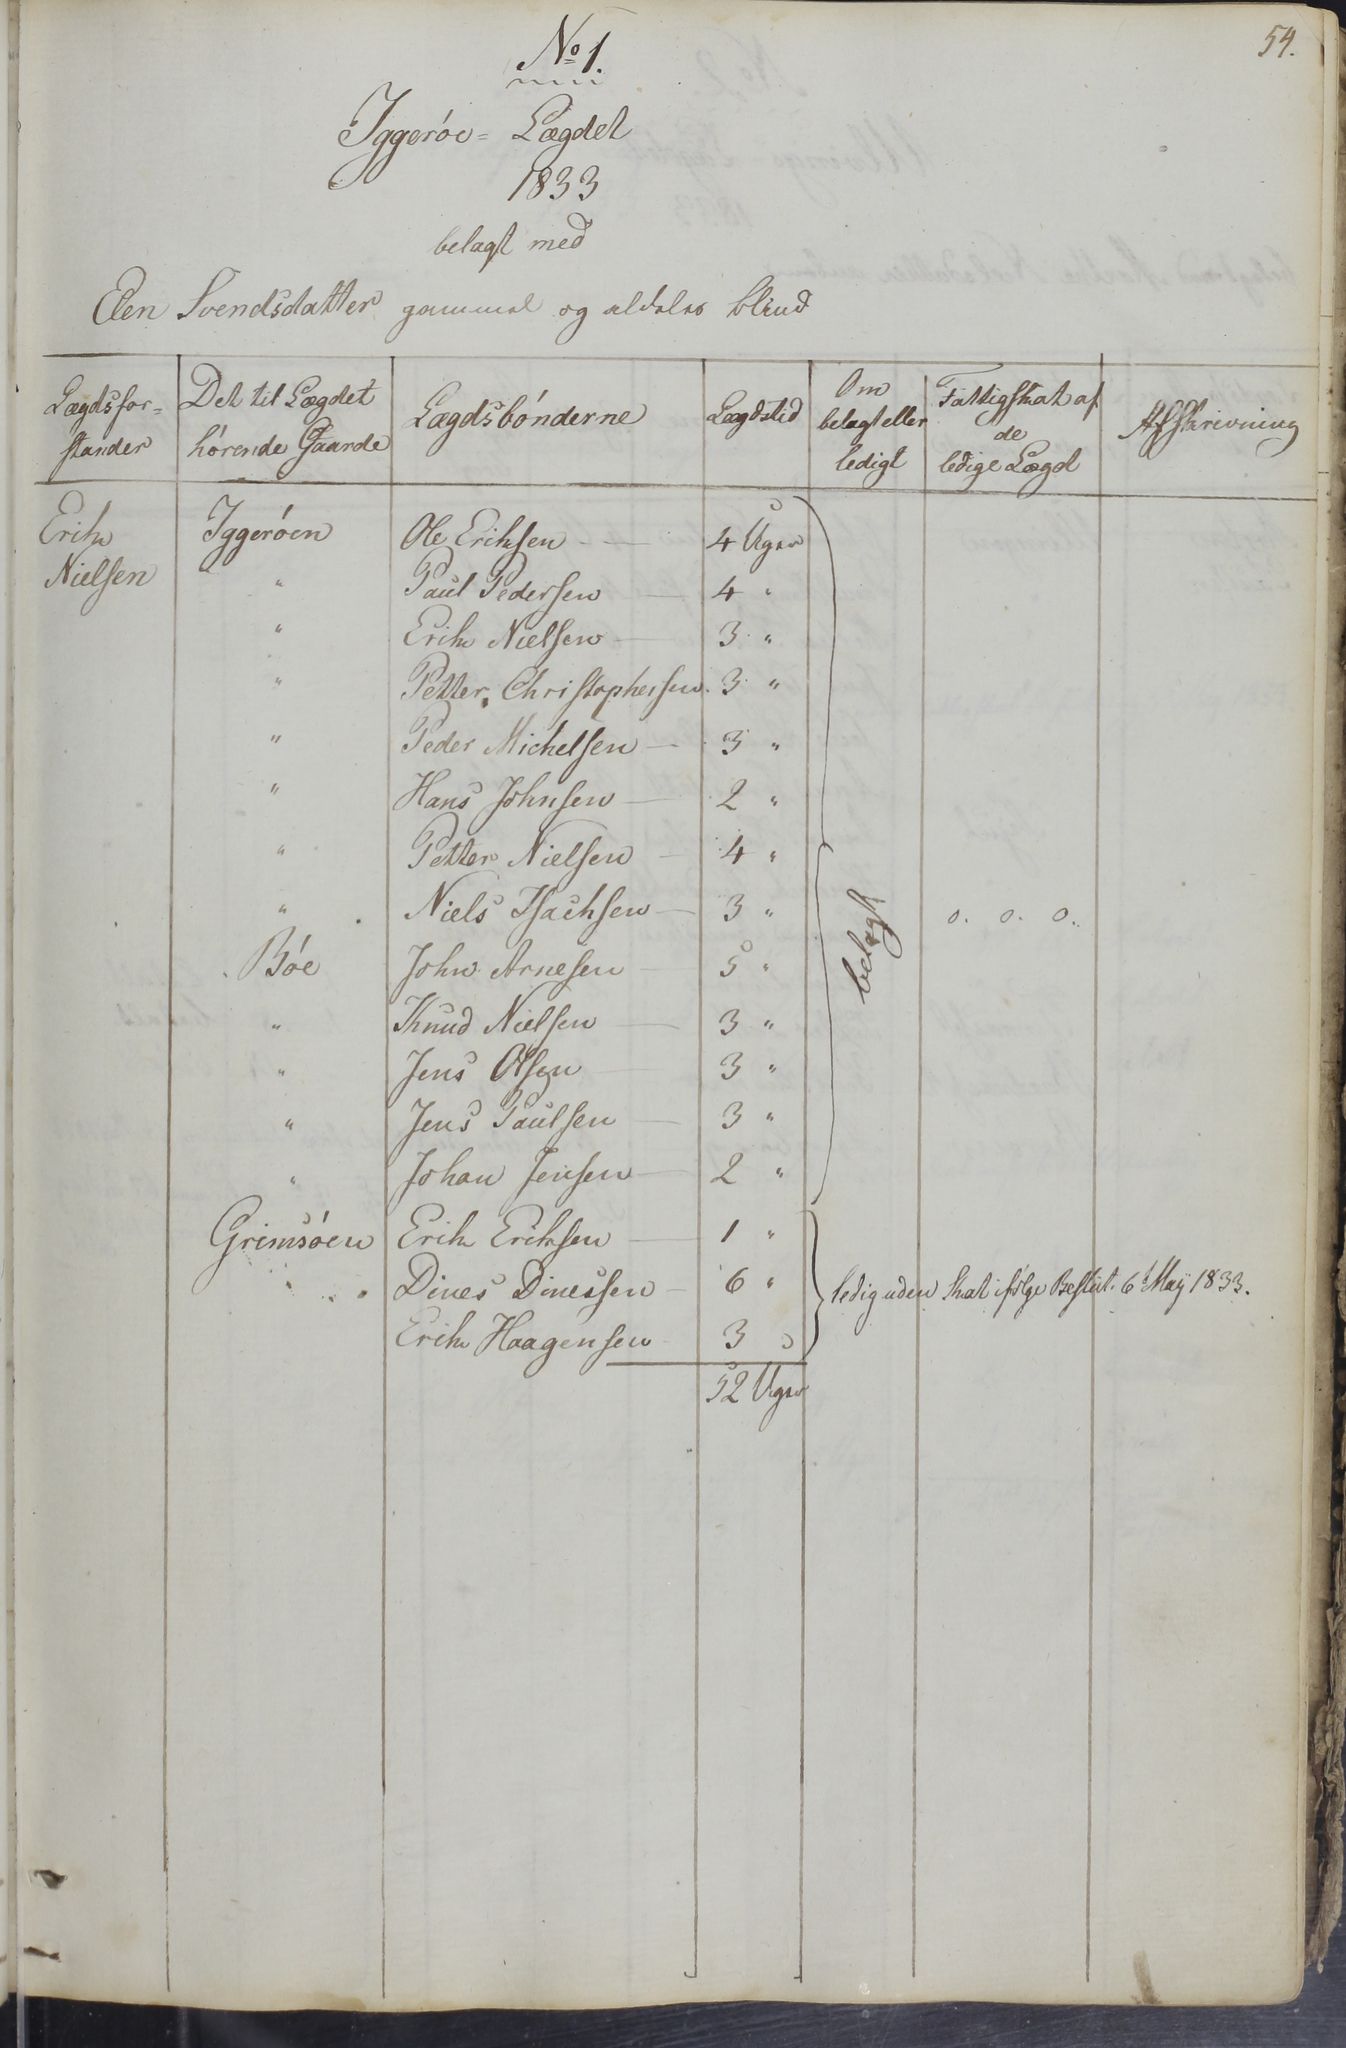 54.
No 1.
Iggerøe= Lægdet
1833
belagt med
Elen Svendsdatter gammel og aldeles blind
Lægdsfor=
stander
Det til Lægdet
hørende Gaarde
Lægdsbønderne
Lægdstid
Om
belagt eller
ledigt
Fattigskat af
de
ledige Lægd
Afskrivning
Erik Iggerøen Ole Eriksen 4 Uger
Nielsen " Paul Pedersen 4 "
" Erik Nielsen 3 "
" Petter Christophersen 3 "
" Peder Michelsen 3 "
" Hans Johnsen 2 "
" Petter Nielsen 4 "
" Niels Isachsen 3 " belagt o. o. o.
Bøe John Arnesen 5 "
" Knud Nielsen 3 "
" Jens Olsen 3 "
" Jens Paulsen 3 "
" Johan Jensen 2 "
Grimsøen Erik Eriksen 1 "
" Dines Dinessen 6 " ledig uden Skat ifølge Beslut. 6 May 1833.
Erik Haagensen 3 "
52 Uger